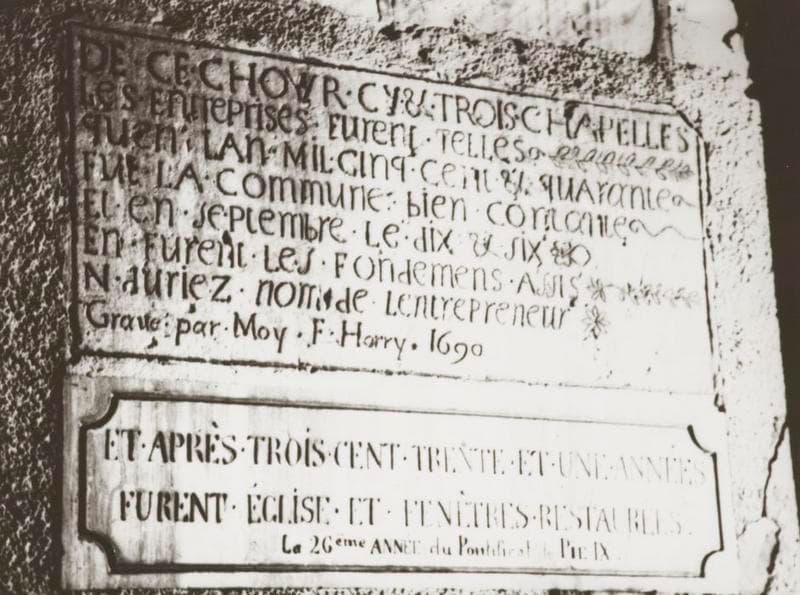 DE·CE·CHOVR·CY·&·TROIS·CHAPELLES
LES·ENTREPRISES·FURENT·TELLES
quen·LAN·MIL·CINQ·CENT·&·quarante
FUT·LA·Commune·bien·contante
ET·en·septembre·Le·dix·&·six
En·Furent·Les·Fondemens·Assis
N·auriez·nom·de·Lentrepreneur
Gravé·par·Moy·F·Harry·1690
ET·APRÈS·TROIS·CENT·TRENTE·ET·UNE·ANNÉES
FURENT·ÉGLISE·ET·FENÊTRES·RESTAURÉES.
La 26ème ANNÉE du Pontificat de PIE IX.